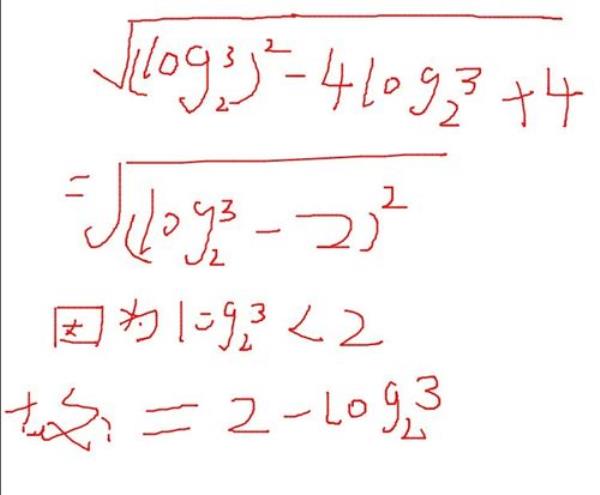 √(log₂³)² - 4log₂³ + 4
= √(log₂³ - 2)²
因为 log₂³ < 2
故: = 2 - log₂³